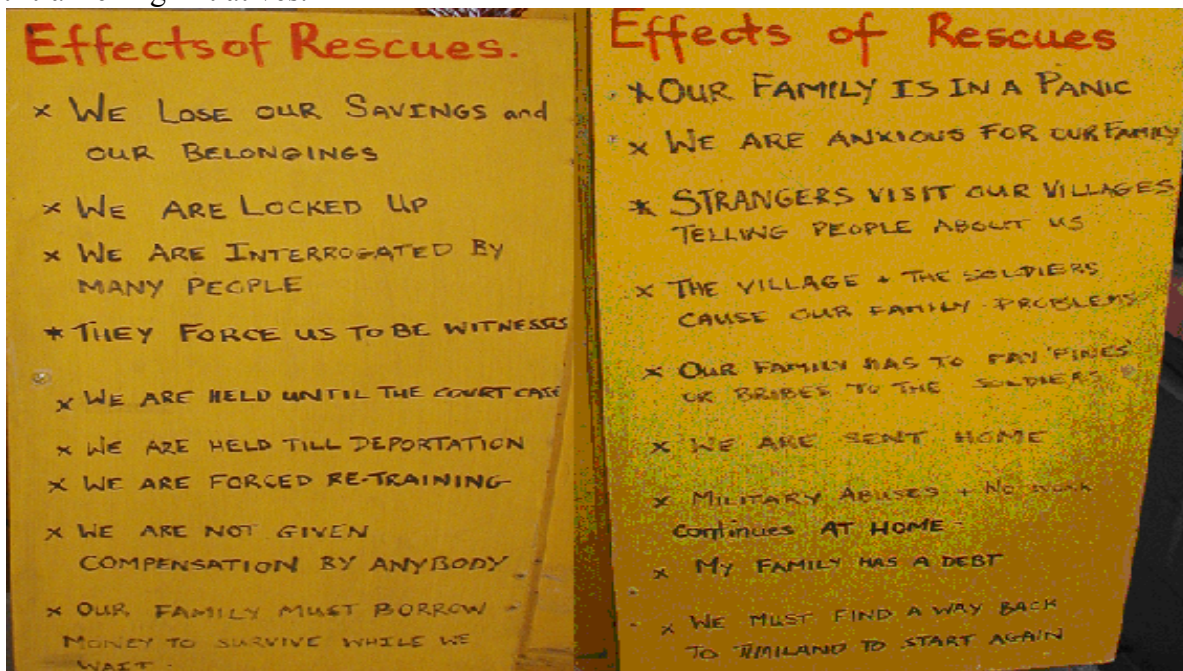 Effects of Rescues.
x WE LOSE OUR SAVINGS and
OUR BELONGINGS
x WE ARE LOCKED UP
x WE ARE INTERROGATED BY
MANY PEOPLE
* THEY FORCE US TO BE WITNESSES
x WE ARE HELD UNTIL THE COURT CASE
x WE ARE HELD TILL DEPORTATION
x WE ARE FORCED RE-TRAINING
x WE ARE NOT GIVEN
COMPENSATION BY ANYBODY
x OUR FAMILY MUST BORROW
MONEY TO SURVIVE WHILE WE
WAIT.
Effects of Rescues
* OUR FAMILY IS IN A PANIC
x WE ARE ANXIOUS FOR OUR FAMILY
* STRANGERS VISIT OUR VILLAGES
TELLING PEOPLE ABOUT US
x THE VILLAGE + THE SOLDIERS
CAUSE OUR FAMILY PROBLEMS
x OUR FAMILY HAS TO PAY 'FINES'
OR BRIBES TO THE SOLDIERS
x WE ARE SENT HOME
x MILITARY ABUSES + NO WORK
continues AT HOME -
x MY FAMILY HAS A DEBT
x WE MUST FIND A WAY BACK
TO THAILAND TO START AGAIN